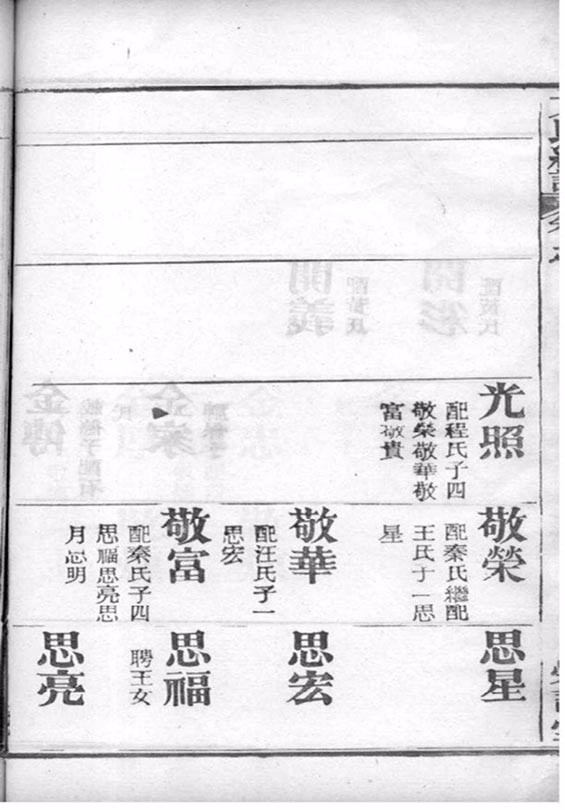 光照
配程氏子四
敬榮敬華敬
富敬貴
敬榮
配秦氏繼配
王氏子一思
星
敬華
配汪氏子一
思宏
敬富
配秦氏子四
思福思亮思
月思明
思星
思宏
思福
聘王女
思亮